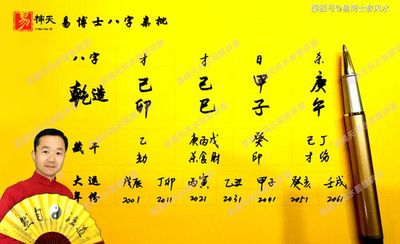 搜狐号@易博士数风水
易 怖天 易博士八字真批
八字 才 才 日 杀
乾造 己卯 己巳 甲子 庚午
藏干 乙 庚丙戊 癸 己丁
劫 杀食财 印 才伤
大运 戊辰 丁卯 丙寅 乙丑 甲子 癸亥 壬戌
年份 2001 2011 2021 2031 2041 2051 2061